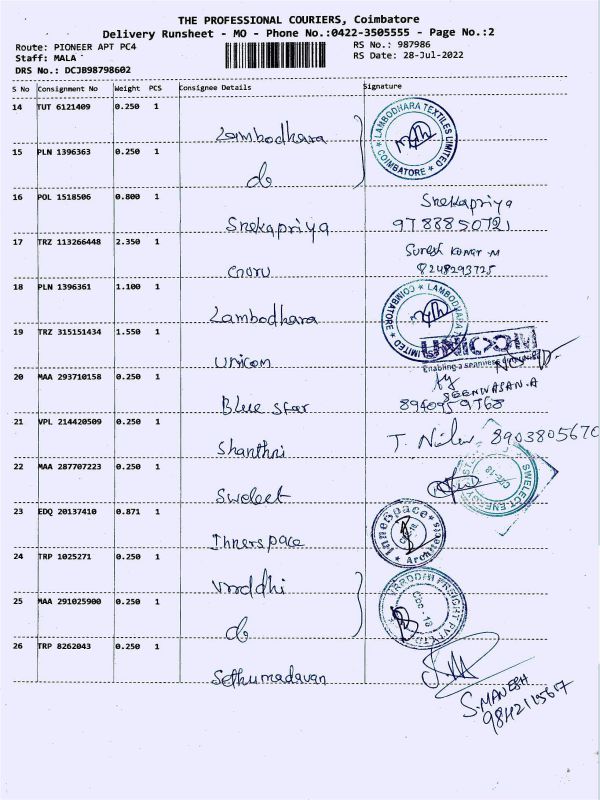 THE PROFESSIONAL COURIERS, Coimbatore
Delivery Runsheet - MO - Phone No.:0422-3505555 - Page No.:2
Route: PIONEER APT PC4 RS No.: 987986
Staff: MALA RS Date: 28-Jul-2022
DRS No.: DCJB98798602
S No Consignment No Weight PCS Consignee Details Signature
14 TUT 6121409 0.250 1 Lambodhara
LAMBODHARA TEXTILES LIMITED * COIMBATORE *
15 PLN 1396363 0.250 1 do
16 POL 1518506 0.800 1 Snekapriya Snekapriya
9788850721
17 TRZ 113266448 2.350 1 Guru Suresh Kumar M
8248293725
18 PLN 1396361 1.100 1 Lambodhara
19 TRZ 315151434 1.550 1 Unicom
Enabling a seamless
20 MAA 293710158 0.250 1 Blue Star SEENIVASAN.A
8940959768
21 VPL 214420509 0.250 1 Shanthni T. 8903805670
22 MAA 287707223 0.250 1 Swelect
SWELECT ENERGY
CBE-18
23 EDQ 20137410 0.871 1 Innerspace
Innerspace * Architects *
24 TRP 1025271 0.250 1 Vrddhi
VRRDDHI FREIGHT PVT LTD
Cbe - 18
25 MAA 291025900 0.250 1 do
26 TRP 8262043 0.250 1 Sethumadavan
S.MANESH
9842115617